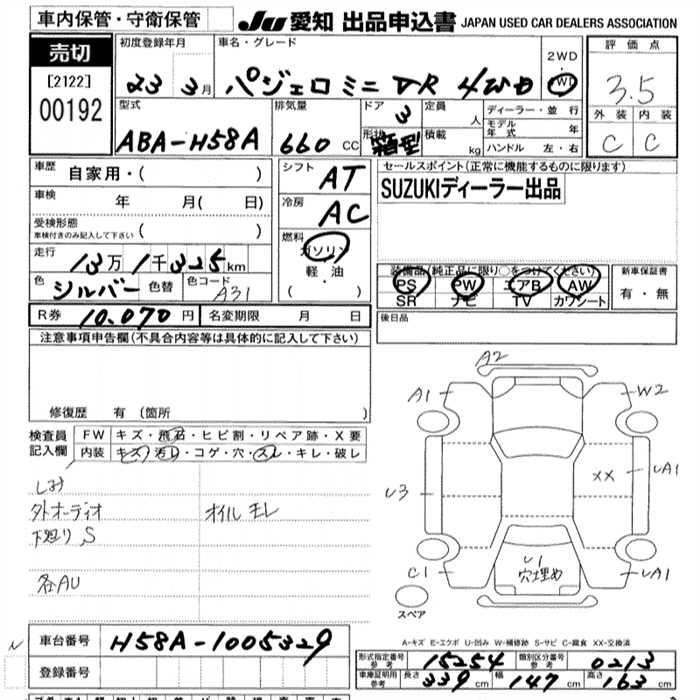 車内保管・守衛保管
JU 愛知 出品申込書 JAPAN USED CAR DEALERS ASSOCIATION
売切
[2122]
00192
初度登録年月
23年 3月
車名・グレード
パジェロミニ VR 4WD
2WD
4WD
評価点
3.5
外装 内装
C C
型式
ABA-H58A
排気量
660 CC
ドア
3
形状
箱型
定員
人
積載
kg
ディーラー・並行
モデル年式 年
ハンドル 左・右
車歴
自家用・( )
車検
年 月( 日)
受検形態
車検付きのみ記入して下さい ( )
走行
13万1千325km
色
シルバー
色替
色コード
A31
シフト
AT
冷房
AC
燃料
ガソリン
軽・油
( )
セールスポイント(正常に機能するものに限ります)
SUZUKIディーラー出品
装備品(純正品に限り○をつけてください)
PS PW エアB AW
SR ナビ TV カワシート
新車保証書
有・無
R券 10,070円 名変期限 月 日
後日品
注意事項申告欄(不具合内容等は具体的に記入して下さい)
修復歴 有 (箇所 )
検査員記入欄
FW キズ・飛石・ヒビ割・リペア跡・X要
内装 キズ・汚レ・コゲ・穴・スレ・キレ・破レ
しみ
外オーディオ
オイルモレ
下廻りS
各AU
A2
A1
W2
XX
UA1
U3
U1
穴埋め
C1
UA1
スペア
A-キズ E-エクボ U-凹み W-補修跡 S-サビ C-腐食 XX-交換済
車台番号
H58A-1005329
登録番号
形式指定番号 参考 15254
類別区分番号 参考 0213
車庫証明用 参考
長さ 339cm
幅 147cm
高さ 163cm